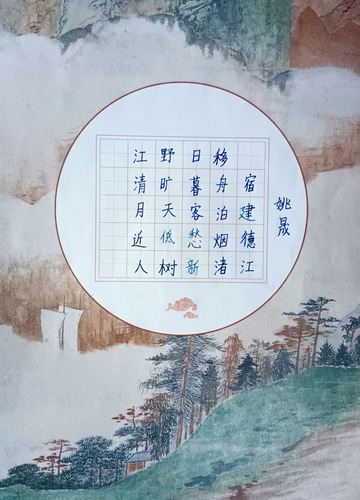 姚晟
宿建德江
移舟泊烟渚
日暮客愁新
野旷天低树
江清月近人